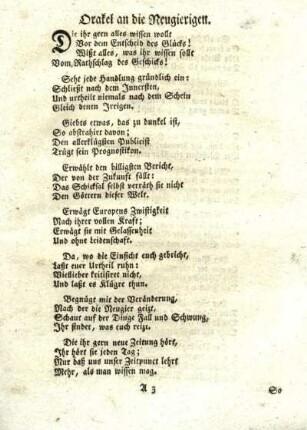 Orakel an die Neugierigen.
Die ihr gern alles wissen wollt
Vor dem Entscheid des Glücks!
Wißt alles, was ihr wissen sollt
Vom Rathschlag des Geschicks!
Seht jede Handlung gründlich ein:
Schließt nach dem Innersten,
Und urtheilt niemals nach dem Schein
Gleich denen Irrigen.
Giebts etwas, das zu dunkel ist,
So abstrahirt davon;
Den allerklügsten Publicist
Trügt sein Prognostikon.
Erwählt den billigsten Bericht,
Der von der Zukunft fällt:
Das Schicksal selbst verräth sie nicht
Den Göttern dieser Welt.
Erwägt Europens Zwistigkeit
Nach ihrer vollen Kraft;
Erwägt sie mit Gelassenheit
Und ohne Leidenschaft.
Da, wo die Einsicht euch gebricht,
Laßt euer Urtheil ruhn:
Vielleber kritisiret nicht,
Und laßt es Klügre thun.
Begnügt mit der Veränderung,
Nach der die Neugier geizt,
Schaut auf der Dinge Fall und Schwung,
Ihr findet, was euch reizt.
Die ihr gern neue Zeitung hört,
Ihr hört sie jeden Tag;
Nur daß uns unser Zeitpunct lehrt
Mehr, als man wissen mag.
A 3
So